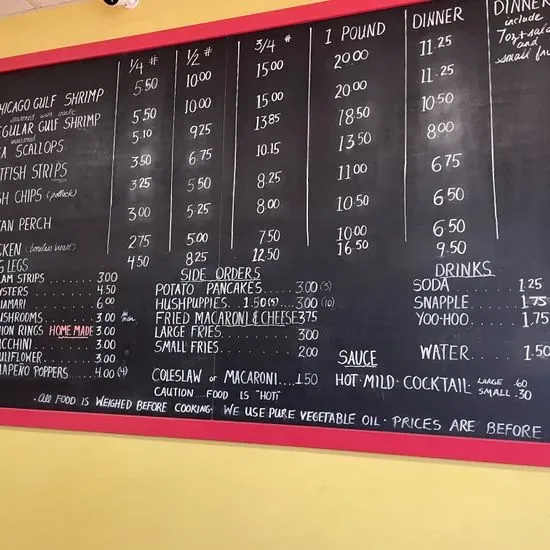 1/4 # 1/2 # 3/4 # 1 POUND DINNER DINNER
include
7oz + sala
and
small fri
HICAGO GULF SHRIMP 5.50 10.00 15.00 20.00 11.25
seasoned with garlic
EGULAR GULF SHRIMP 5.50 10.00 15.00 20.00 11.25
A SCALLOPS 5.10 9.25 13.85 18.50 10.50
TFISH STRIPS 3.50 6.75 10.15 13.50 8.00
SH CHIPS (pollock) 3.25 5.50 8.25 11.00 6.75
EAN PERCH 3.00 5.25 8.00 10.50 6.50
CKEN (boneless breast) 2.75 5.00 7.50 10.00 6.50
G LEGS 4.50 8.25 12.50 16.50 9.50
LAM STRIPS 3.00
YSTERS 4.50
LAMARI 6.00
USHROOMS 3.00
NION RINGS HOME MADE 3.00
CCHINI 3.00
ULIFLOWER 3.00
LAPEÑO POPPERS 4.00 (4)
SIDE ORDERS
POTATO PANCAKES 3.00 (3)
HUSHPUPPIES 1.50 (5) 3.00 (10)
FRIED MACARONI & CHEESE 3.75
LARGE FRIES 3.00
SMALL FRIES 2.00
COLESLAW or MACARONI 1.50
CAUTION FOOD IS "HOT"
DRINKS
SODA 1.25
SNAPPLE 1.75
YOO-HOO 1.75
WATER 1.50
SAUCE
HOT · MILD · COCKTAIL LARGE .60
SMALL .30
. ALL FOOD IS WEIGHED BEFORE COOKING · WE USE PURE VEGETABLE OIL · PRICES ARE BEFORE